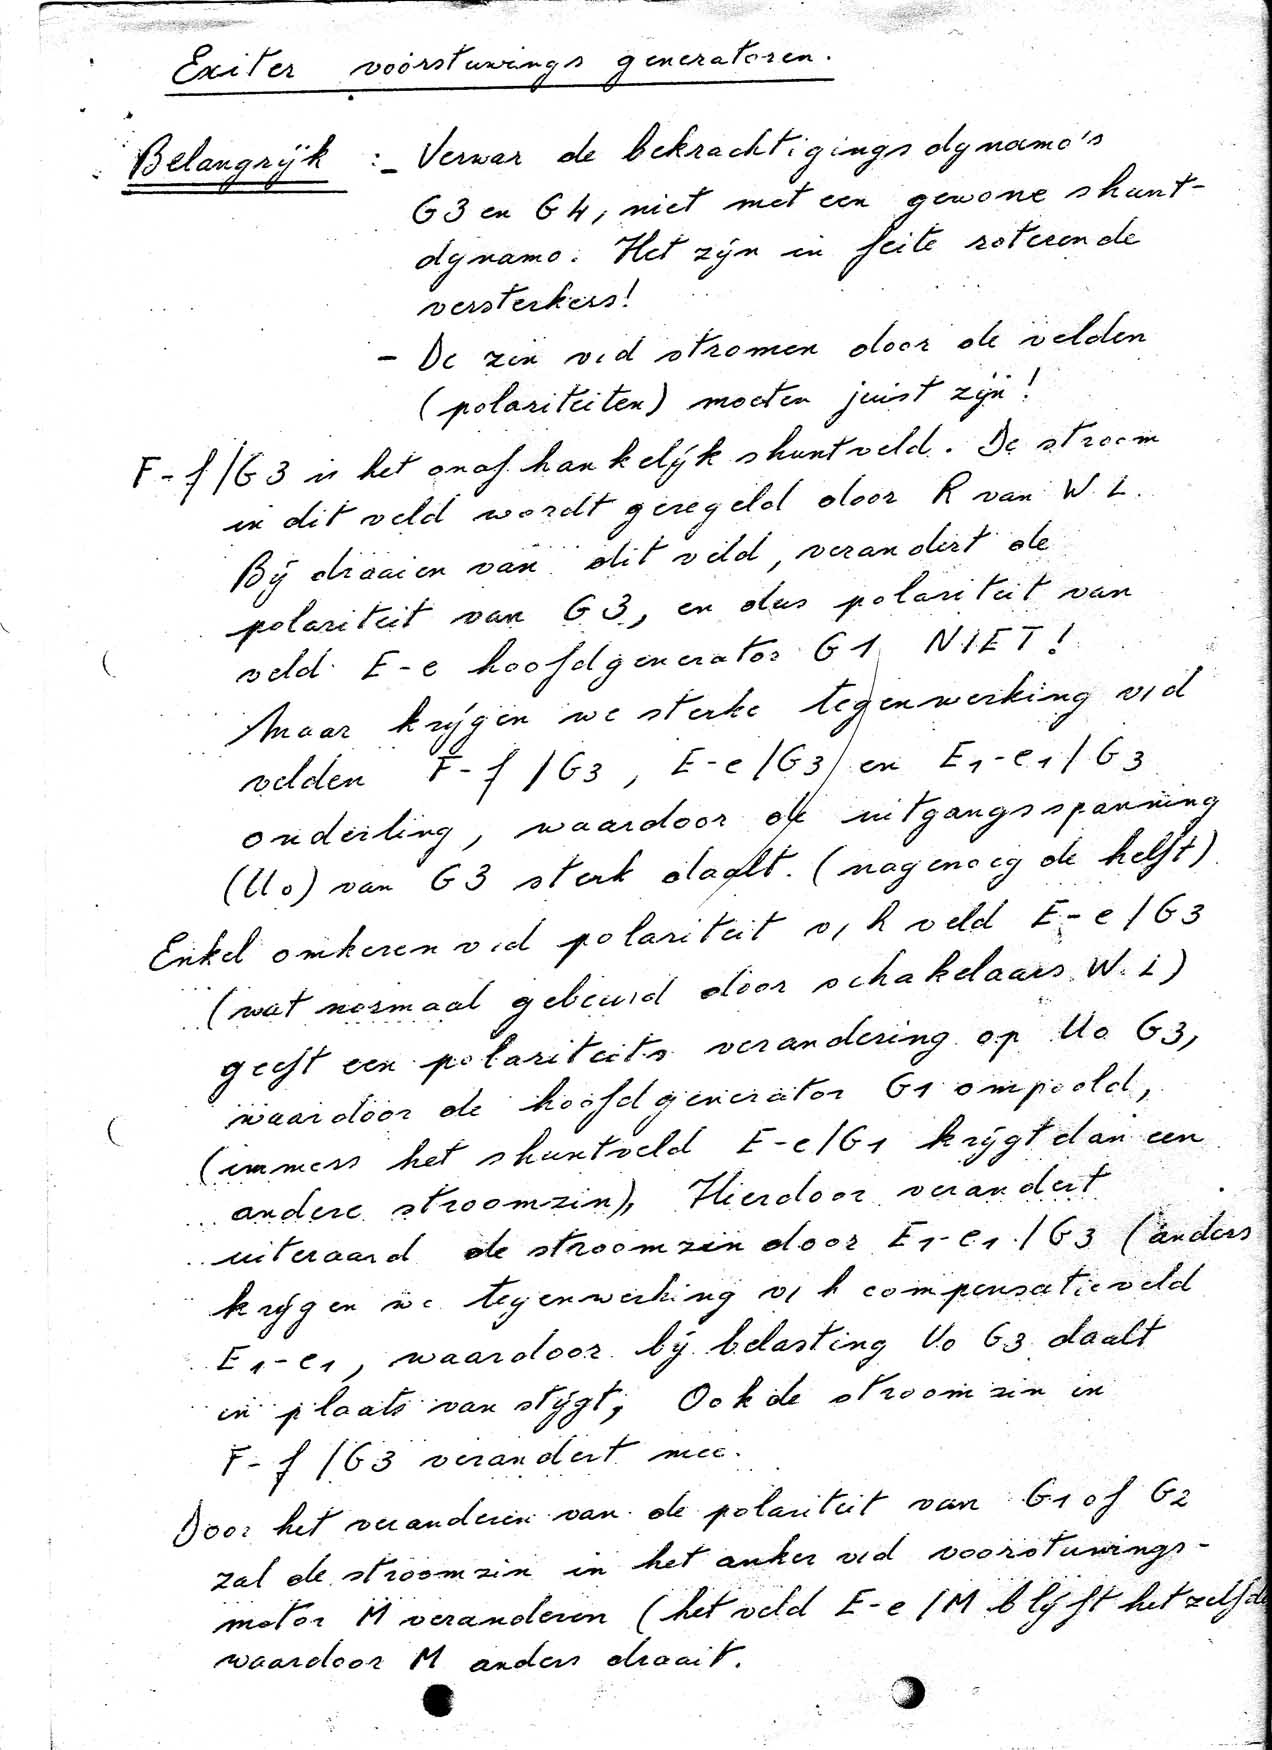 Exiter voorstuwings generatoren.
Belangrijk : - Verwar de bekrachtigingsdynamo's
G3 en G4, niet met een gewone shunt-
dynamo. Het zijn in feite roterende
versterkers!
- De zin v/d stromen door de velden
(polariteiten) moeten juist zijn!
F-f/G3 is het onafhankelijk shuntveld. De stroom
in dit veld wordt geregeld door R van W.L.
Bij draaien van dit veld, verandert de
polariteit van G3, en dus polariteit van
veld E-e hoofdgenerator G1 NIET!
Maar krijgen we sterke tegenwerking v/d
velden F-f/G3, E-e/G3 en E1-e1/G3
onderling, waardoor de uitgangsspanning
(Uo) van G3 sterk daalt. (nagenoeg de helft)
Enkel omkeren v/d polariteit v/h veld E-e/G3
(wat normaal gebeurd door schakelaars W.L)
geeft een polariteits verandering op Uo G3,
waardoor de hoofdgenerator G1 ompoold,
(immers het shuntveld E-e/G1 krijgt dan een
andere stroomzin), Hierdoor verandert
uiteraard de stroomzin door E1-e1/G3 (anders
krijgen we tegenwerking v/h compensatieveld
E1-e1, waardoor bij belasting Uo G3 daalt
in plaats van stijgt, Ook de stroomzin in
F-f/G3 verandert mee.
Door het veranderen van de polariteit van G1 of G2
zal de stroomzin in het anker v/d voorstuwings-
motor M veranderen (het veld E-e/M blijft hetzelfde
waardoor M anders draait.